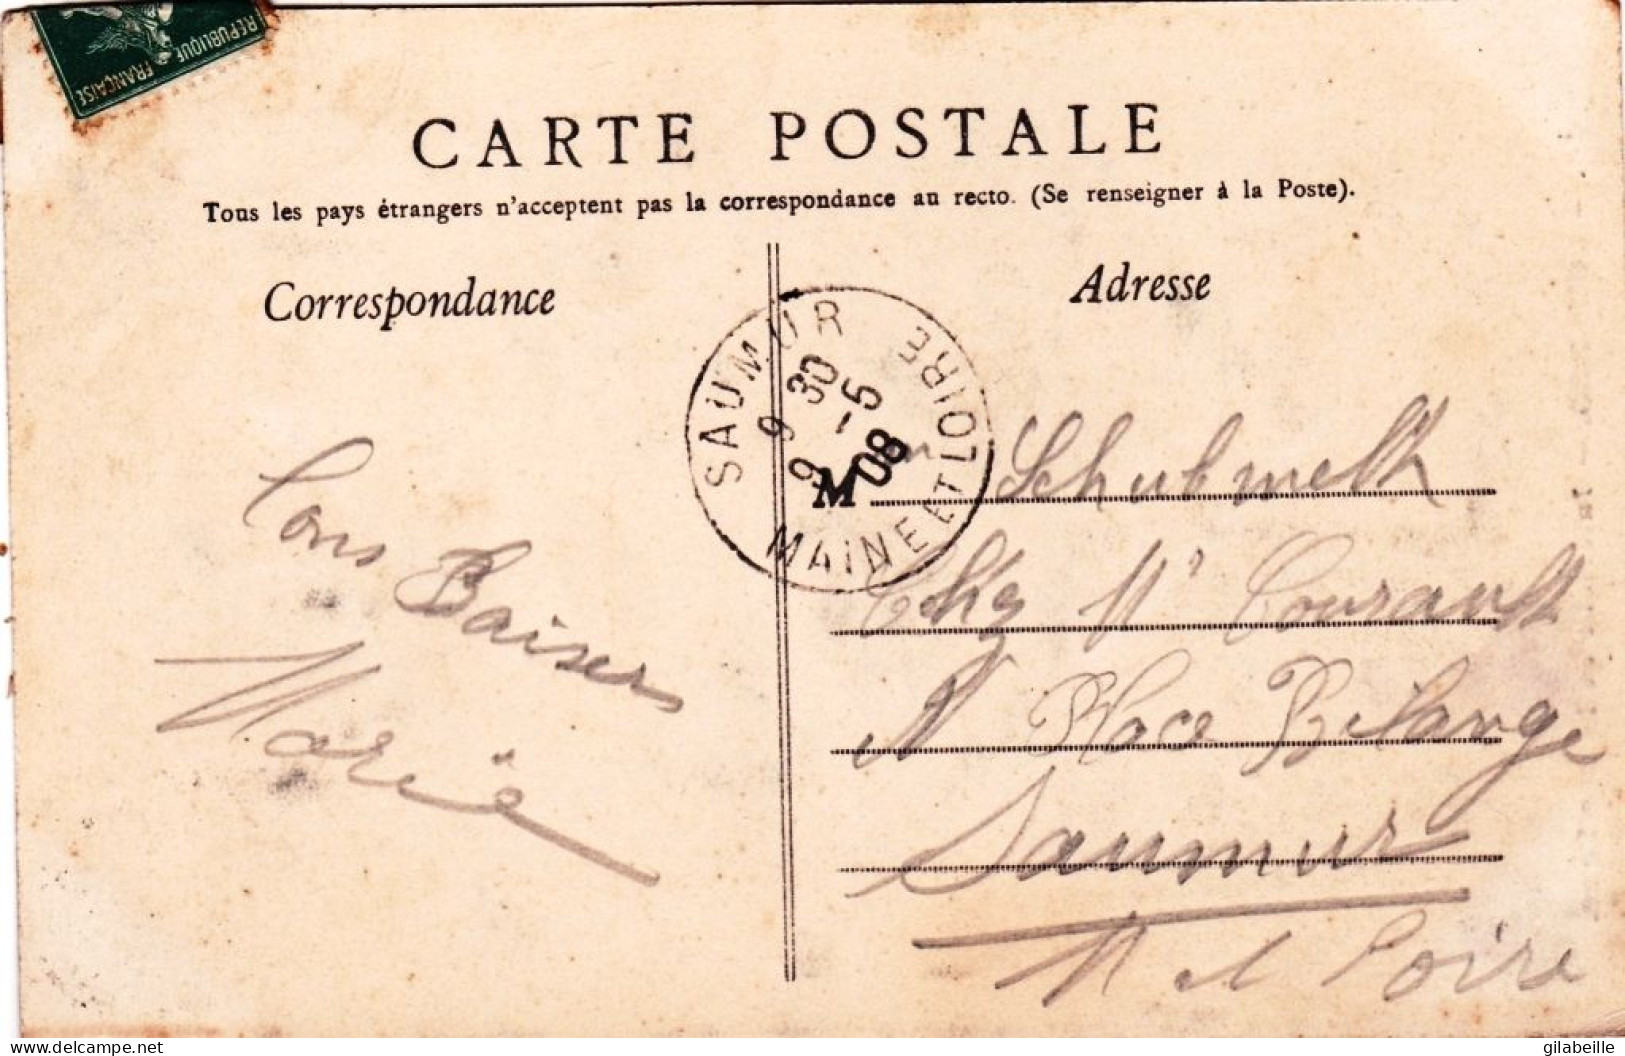 REPUBLIQUE
FRANÇAISE
CARTE POSTALE
Tous les pays étrangers n'acceptent pas la correspondance au recto. (Se renseigner à la Poste).
Correspondance
Adresse
SAUMUR
MAINE ET LOIRE
9 30
9 -5
08
M
Schubmelk
Chez Mr Courault
Place Bilange
Saumur
M et Loire
Bons Baisers
Marie
delcampe.net
gilabeille